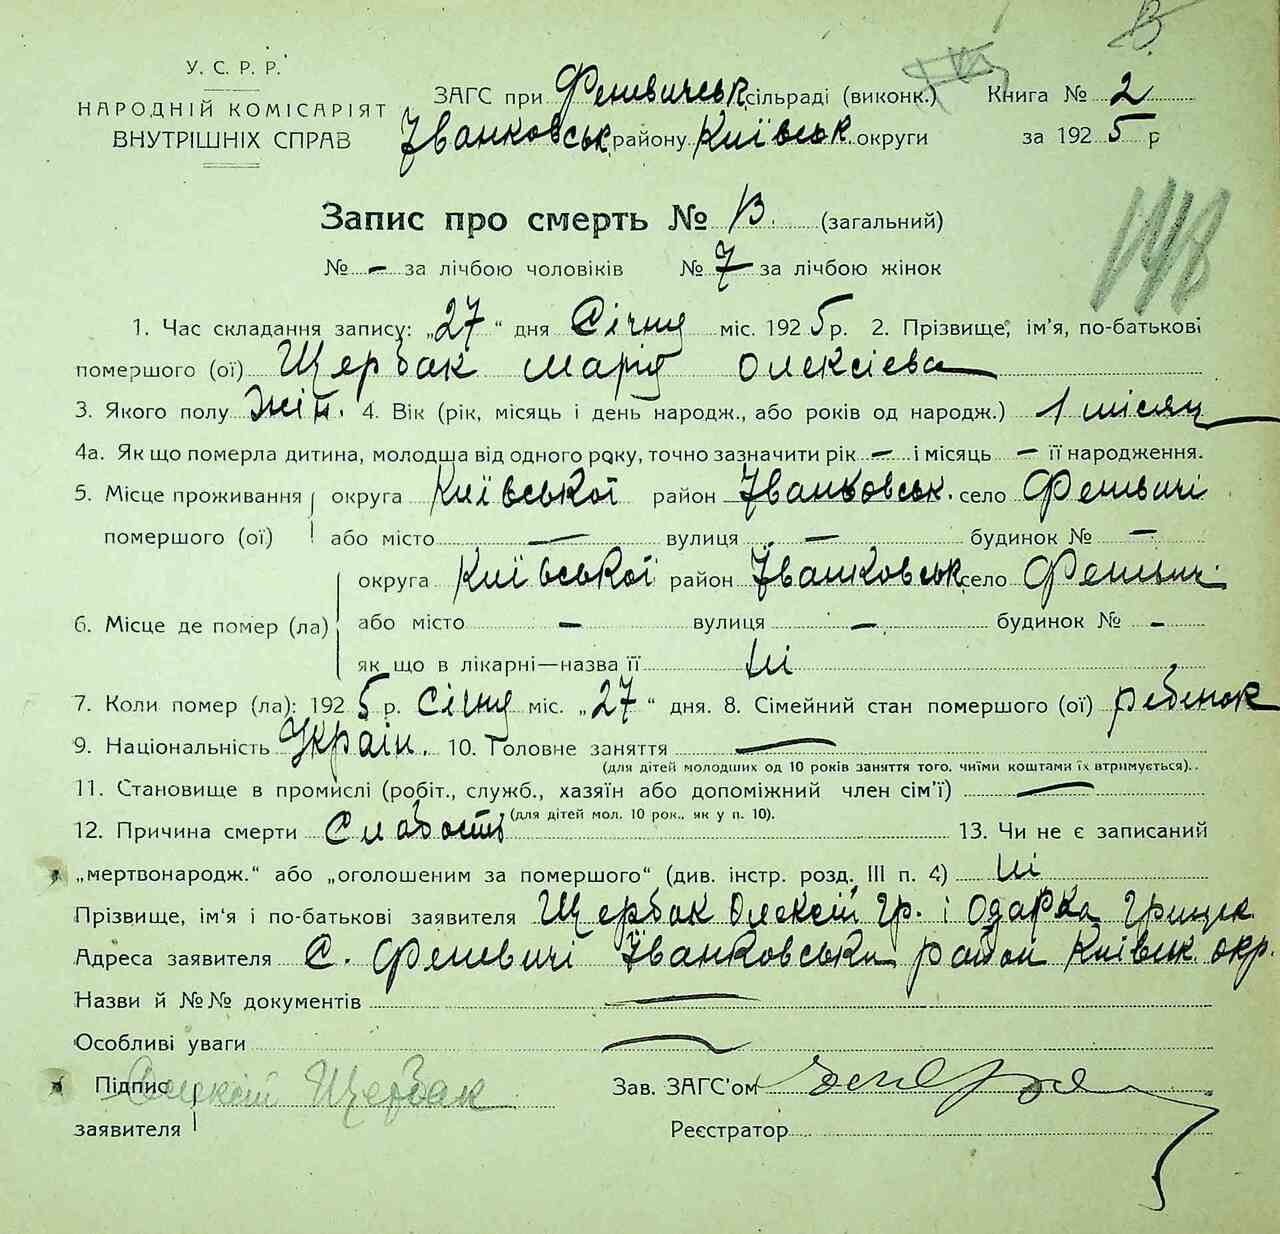 У. С. Р. Р.
НАРОДНІЙ КОМІСАРІЯТ
ВНУТРІШНІХ СПРАВ
ЗАГС при Феневичськ. сільраді (виконк.) Книга № 2
Іванковськ. району Київськ. округи за 1925 р
Запис про смерть № 13. (загальний)
№ – за лічбою чоловіків № 7 за лічбою жінок
1. Час складання запису: „27“ дня Січня міс. 1925 р. 2. Прізвище, ім'я, по-батькові
помершого (ої) Щербак Марія Олексієва
3. Якого полу Жін. 4. Вік (рік, місяць і день народж., або років од народж.) 1 місяц
4а. Як що померла дитина, молодша від одного року, точно зазначити рік – і місяць – її народження.
5. Місце проживання округа Київської район Іванковськ. село Феневичі
помершого (ої) або місто – вулиця – будинок № –
округа Київської район Іванковськ. село Феневичі
6. Місце де помер (ла) або місто – вулиця – будинок № –
як що в лікарні—назва її Ні
7. Коли помер (ла): 1925 р. Січня міс. „27“ дня. 8. Сімейний стан помершого (ої) ребенок
9. Національність Україн. 10. Головне заняття –
(для дітей молодших од 10 років заняття того, чиїми коштами їх втримується).
11. Становище в промислі (робіт., служб., хазяїн або допоміжний член сім'ї) –
(для дітей мол. 10 рок., як у п. 10).
12. Причина смерти Слабость 13. Чи не є записаний
„мертвонародж.“ або „оголошеним за помершого“ (див. інстр. розд. III п. 4) Ні
Прізвище, ім'я і по-батькові заявителя Щербак Олексій Гр. і Одарка Грицк.
Адреса заявителя С. Феневичі Іванковськи район Київськ. окр.
Назви й №№ документів –
Особливі уваги –
Підпис Олексій Щербак Зав. ЗАГС'ом
заявителя Реєстратор